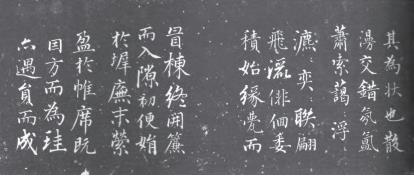 其為狀也散
漫交錯氛氳
蕭索藹〻浮〻
瀌〻奕〻聯翩
飛流俳佪委
積始緣甍而
冒棟終開簾
而入隙初便娟
於墀廡末縈
盈於帷席既
因方而為珪
亦遇員而成